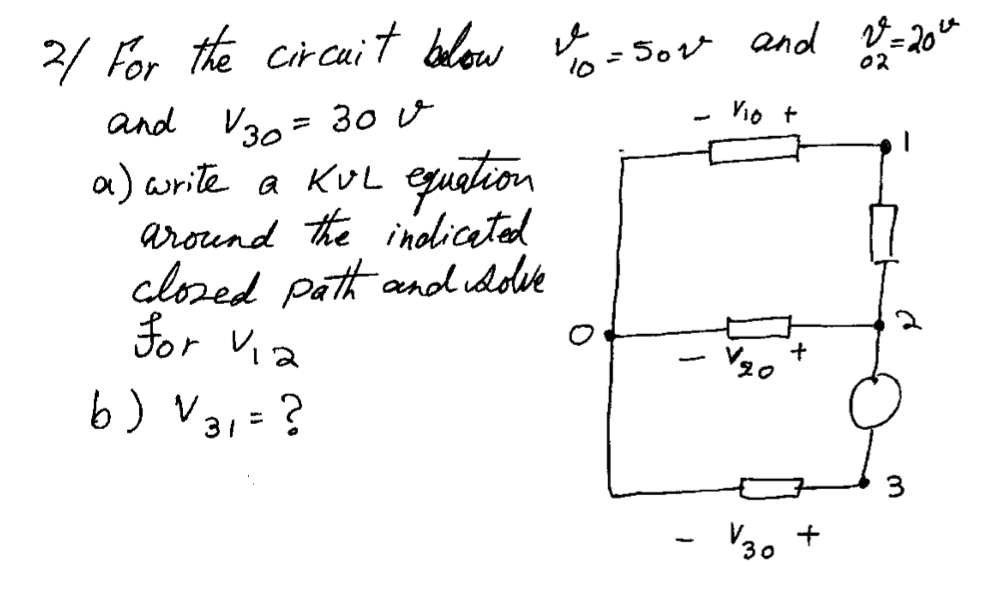 2/ For the circuit below v10 = 50v and v02 = 20v
and V30 = 30 v
a) write a KVL equation
around the indicated
closed path and solve
for V12
b) V31 = ?
- V10 +
1
0
2
- V20 +
3
- V30 +